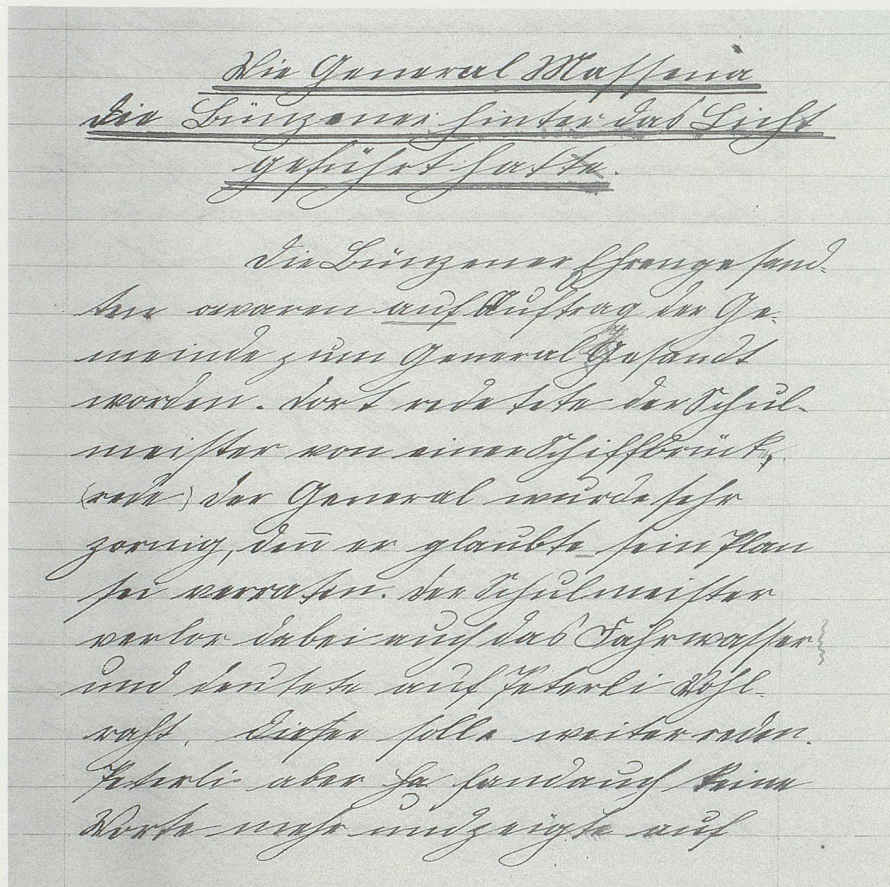 Wie General Massena
die Bünzener hinter das Licht
geführt hatte.
Die Bünzener Ehrengesand-
ten waren auf Auftrag der Ge-
meinde zum General Gesandt
worden. Dort redetete der Schul-
meister von einer Schiffbrück,
(rede) Der General wurde sehr
zornig, deñ er glaubte sein Plan
sei verraten. Der Schulmeister
verlor dabei auch das Fahrwasser
und deutete auf Peterli Vohl-
raht. Dieser solle weiterreden.
Peterli aber fand auch keine
Worte mehr und zeigte auf